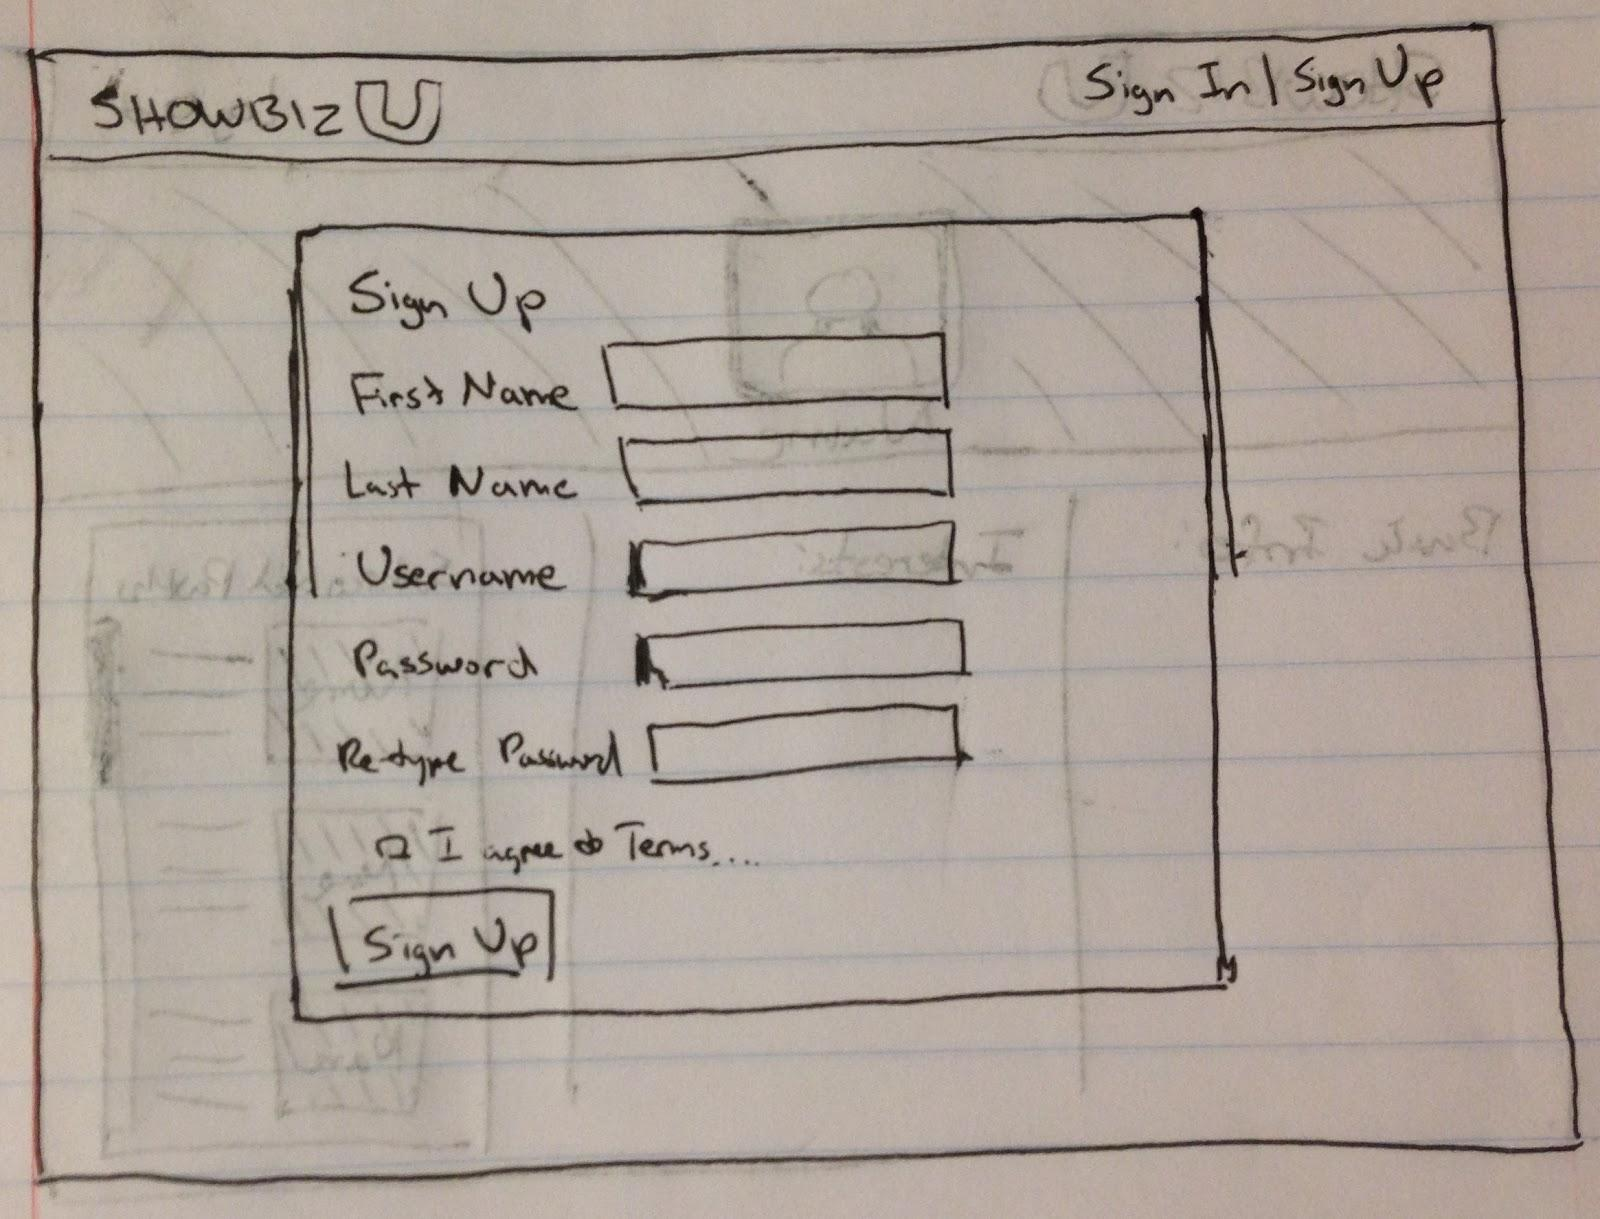 SHOWBIZ U
Sign In | Sign Up
Sign Up
First Name
Last Name
Username
Password
Re-type Password
I agree to Terms....
Sign Up
Basic Info:
Interests: